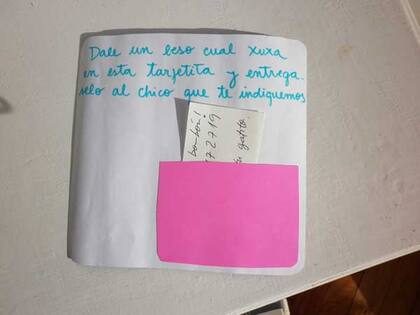 Dale un beso cual xuxa
en esta tarjetita y entrega-
selo al chico que te indiquemos
722719